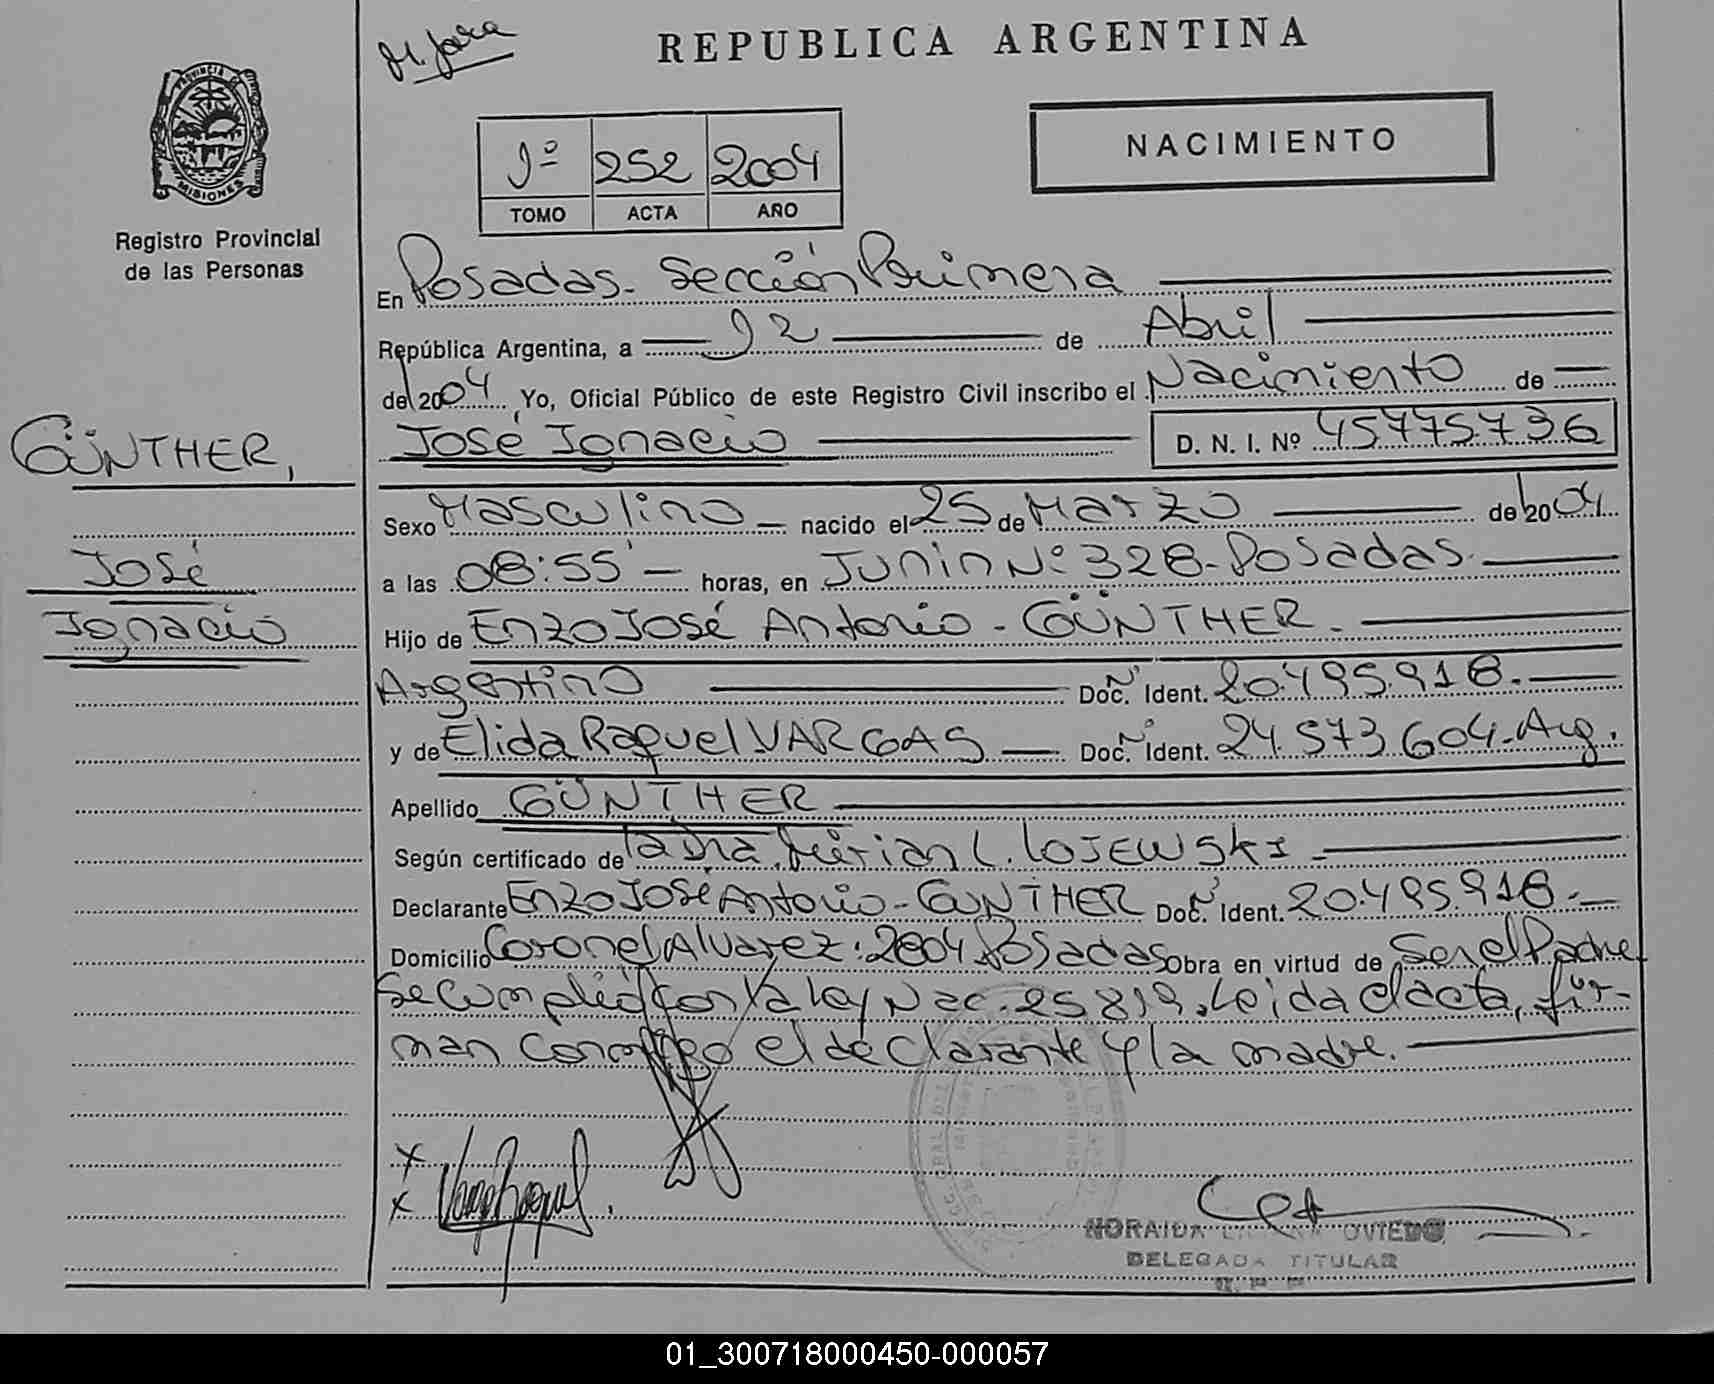 M. Jara
REPUBLICA ARGENTINA
PROVINCIA DE
MISIONES
Registro Provincial
de las Personas
1º 252 2004
TOMO ACTA AÑO
NACIMIENTO
En Posadas. Sección Primera
República Argentina, a 12 de Abril
del 2004 Yo, Oficial Público de este Registro Civil inscribo el Nacimiento de
José Ignacio D. N. I. Nº 45775736
GÜNTHER,
José
Ignacio
Sexo Masculino nacido el 25 de Marzo del 2004
a las 08:55' horas, en Junin Nº 328-Posadas.
Hijo de Enzo José Antonio - GÜNTHER.
Argentino Doc. N° Ident. 20.495.918.
y de Elida Raquel VARGAS Doc. N° Ident. 24.573.604-Arg.
Apellido GÜNTHER
Según certificado de la Dra. Mirian L. LOJEWSKI
Declarante Enzo José Antonio - GUNTHER Doc. N° Ident. 20.495.918.
Domicilio Coronel Alvarez: 2804 Posadas Obra en virtud de Ser el Padre
Se cumplió con la Ley Nac. 25819. Leida el acta, fir-
man conmigo el declarante y la madre.
x
x Raquel
NORAIDA OVIEDO
DELEGADA TITULAR
01_300718000450-000057